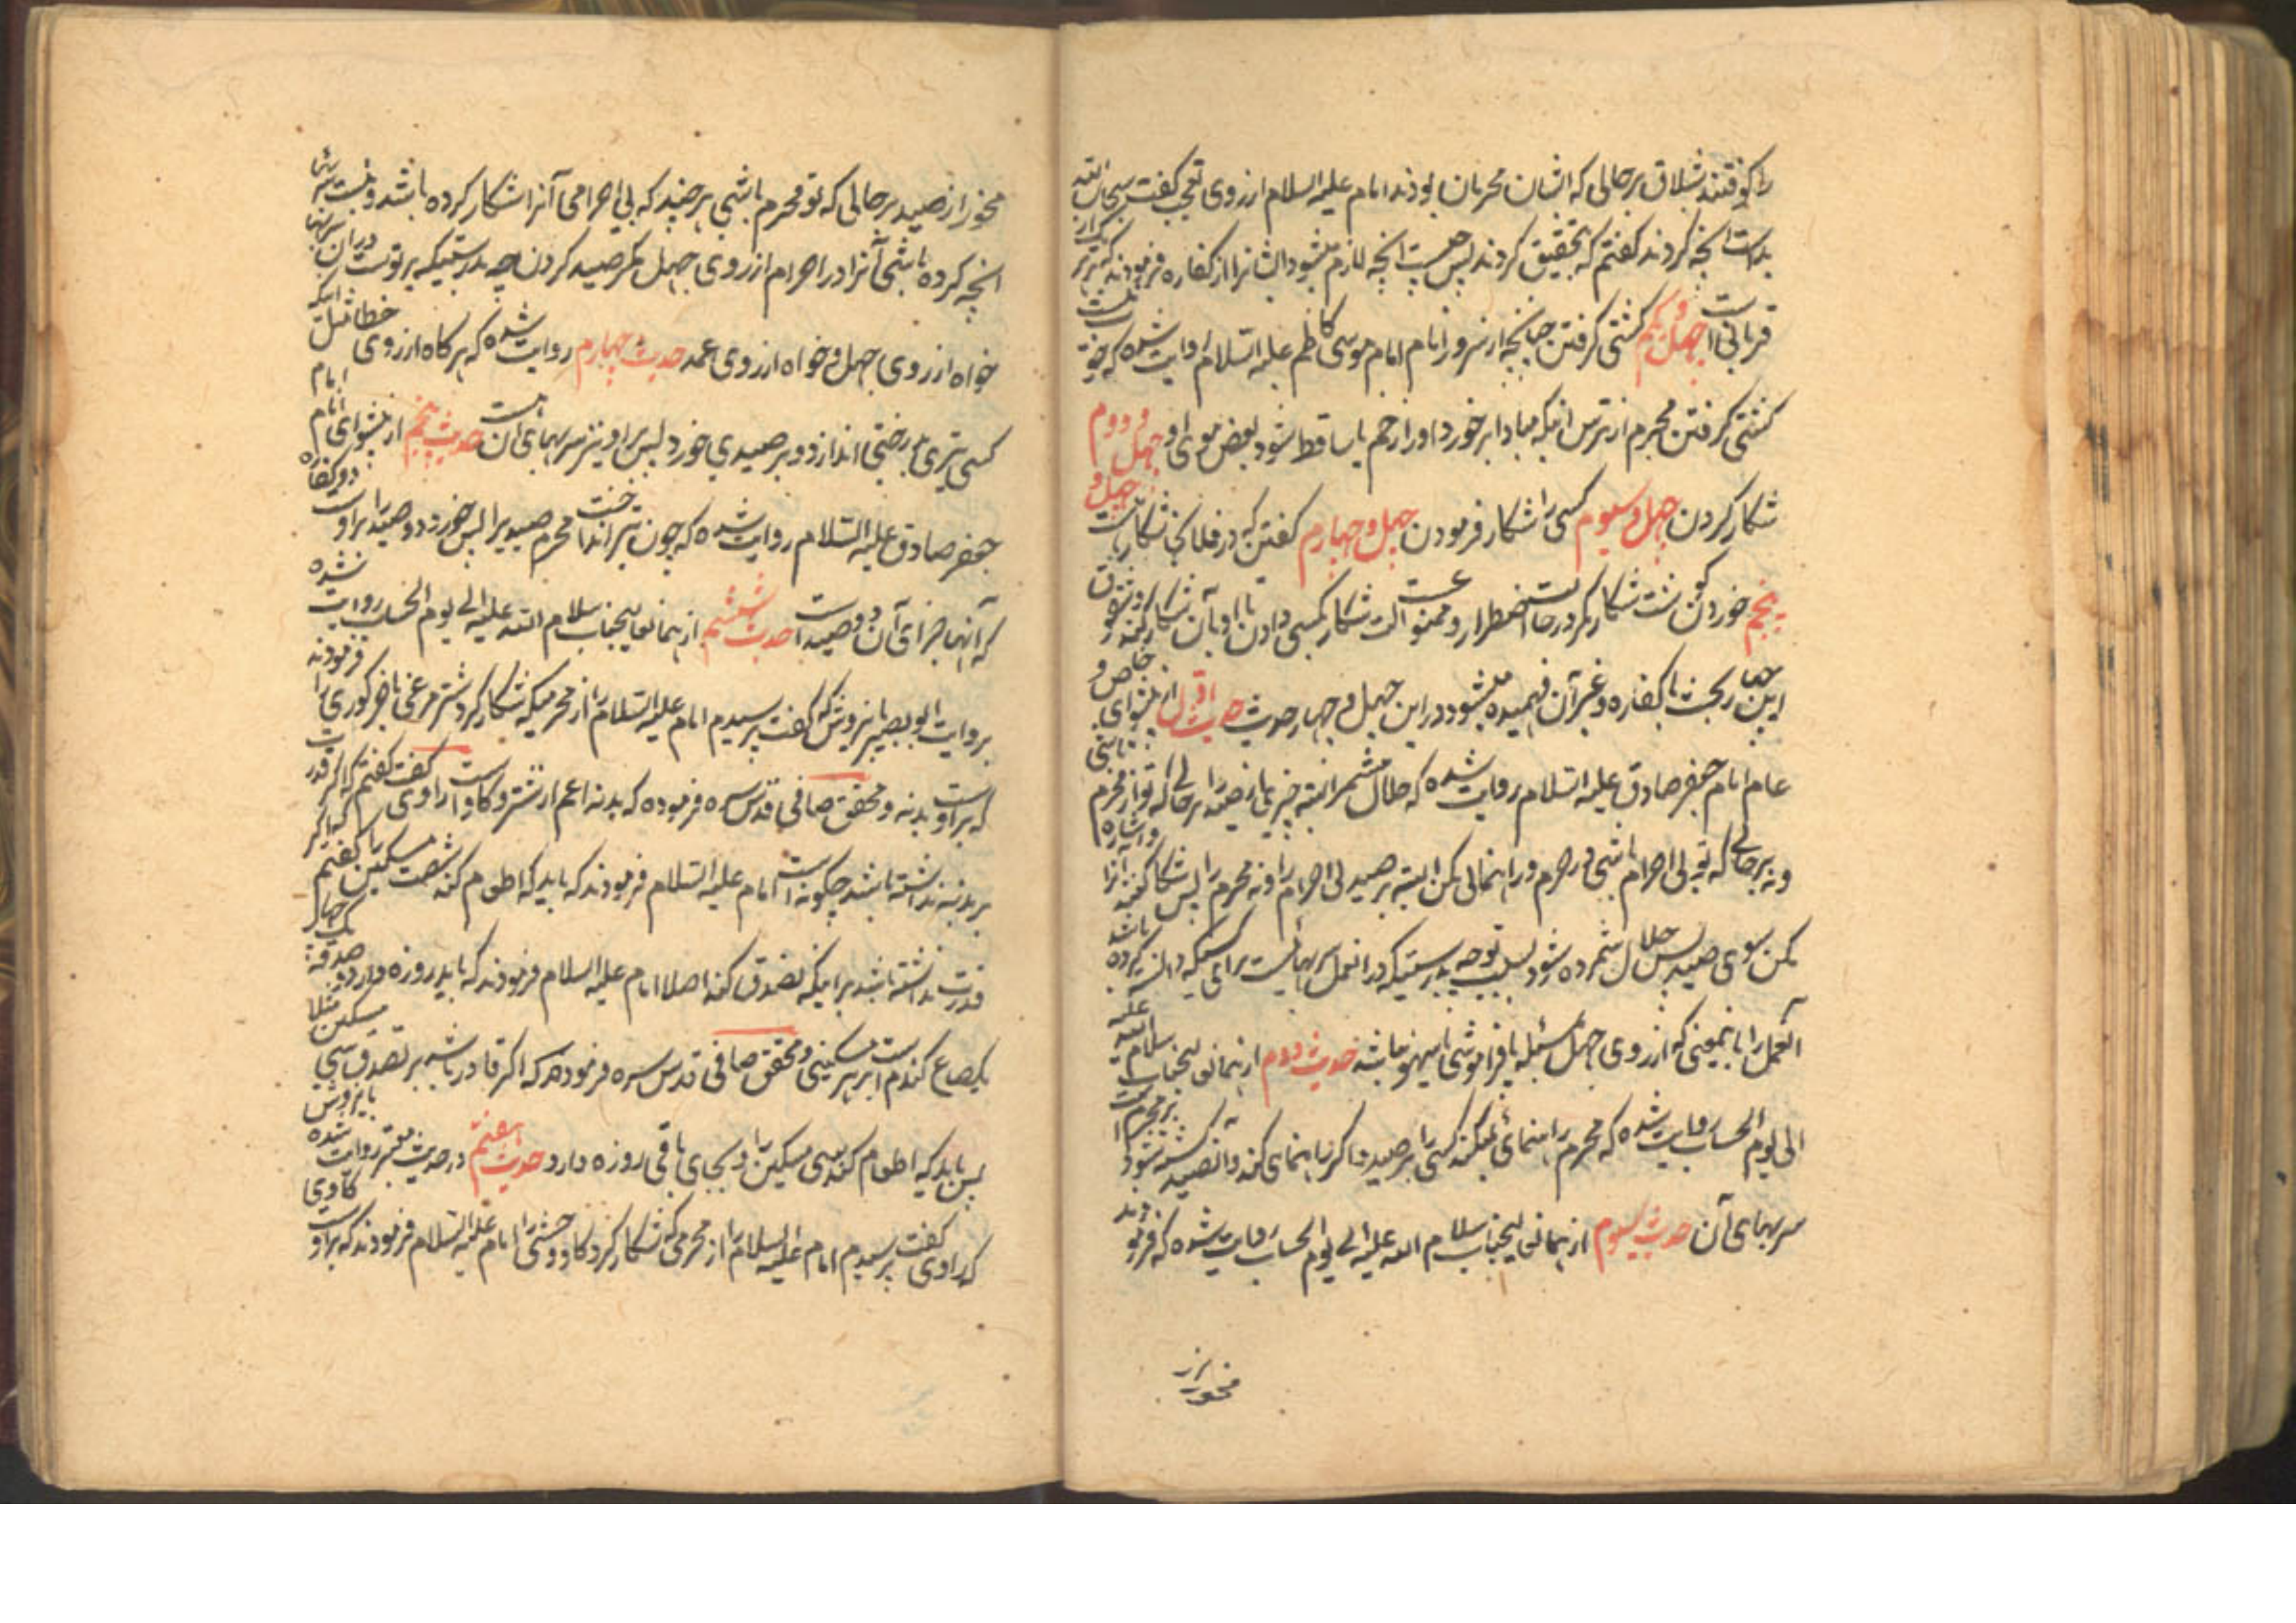 را کوفتند شلاق برحالی که ایشان محرمان بودند امام علیه السلام از روی تعجب گفت سبحان الله
بدست انچه کردند گفتم که تحقیق کردند پس چیست انچه لازم میشود ایشانرا از کفاره فرمودند که بر هر
قربانی است چهل و یکم کشتی گرفتن چنانچه از سرور انام امام موسی کاظم علیه السلام روایت شده که
کشتی گرفتن محرم از ترس اینکه مبادا بر خورد او را زخم یا ساقط شود بعض موی او چهل و دوم
شکار کردن چهل و سیوم کسی را شکار فرمودن چهل و چهارم گفتن که در فلان شکار است چهل و
پنجم خوردن گوشت شکار مگر در حالت اضطرار و ممنوعست الت شکار بکسی دادن تا او بآن شکار کند و
این بحث با کفاره و غیر آن فهمیده میشود در این چهل و چهار حدیث حدیث اول از پیشوای خاص و
عام امام جعفر صادق علیه السلام روایت شده که حلال مشمر البته چیزی از صید را برحالی که تو از محرم باشی
و نه برحالی که تو بی احرام باشی در حرم و راهنمائی مکن البته بر صید بی احرام را و نه محرم را پس شکار کنند آنرا و اشاره
مکن بسوی صید پس حلال شمرده شود بسبب تو چه بدرستیکه در انعمل سربهائیست برای کسیکه دانسته کرده باشد
آنعمل را باینمعنی که از روی جهل مسئله یا فراموشی یا سهو نباشد حدیث دوم از همانعالیجناب سلام الله علیه
الی یوم الحساب روایت شده که محرم راهنمائی نمیکند کسی را بر صید و اگر راهنمائی کند و آنصید کشته شود بر محرم است
سربهای آن حدیث سیوم از همانعالیجناب سلام الله علیه الی یوم الحساب روایت شده که فرمودند
مخور از
مخور از صید برحالی که تو محرم باشی هر چند که بی احرامی آنرا شکار کرده باشد و نیست سربها
انچه کرده باشی آنرا در احرام از روی جهل مگر صید کردن چه بدرستیکه بر تو است در آن سربها
خواه از روی جهل و خواه از روی عمد حدیث چهارم روایت شده که هر گاه از روی خطا مثل اینکه
کسی تیری بر درختی اندازد و بر صیدی خورد پس بر او نیز سربهای آن است حدیث پنجم از پیشوای انام امام
جعفر صادق علیه السلام روایت شده که چون تیر انداخت محرم صیدیرا پس خورد دو صید را بر اوست دو کفاره
که آنها جزای آن دو صید است حدیث ششم از همانعالیجناب سلام الله علیه الی یوم الحساب روایت شده
بروایت ابو بصیر باینروش که گفت پرسیدم امام علیه السلام را از محرمیکه شکار کرد شتر مرغی یا خر گوری را فرمودند
که بر اوست بدنه و محقق صافی قدس سره فرموده که بدنه اعم از شتر و گاو است راوی گفت گفتم که اگر قدرت
بر بدنه نداشته باشد چگونه است امام علیه السلام فرمودند که باید که اطعام کند شصت مسکین را گفتم که اگر
قدرت نداشته باشد بر اینکه تصدق کند اصلا امام علیه السلام فرمودند که باید روزه دارد و صدقه
یکصاع گندم است بر هر مسکینی و محقق صافی قدس سره فرموده که اگر قادر باشد بر تصدق سی مسکین مثلا
پس باید که اطعام کند سی مسکین را و بجای باقی روزه دارد حدیث هفتم در حدیث معتبر روایت شده باینروش
که راوی گفت پرسیدم امام علیه السلام را از محرمی که شکار کرد گاو وحشی را امام علیه السلام فرمودند که بر اوست گاوی